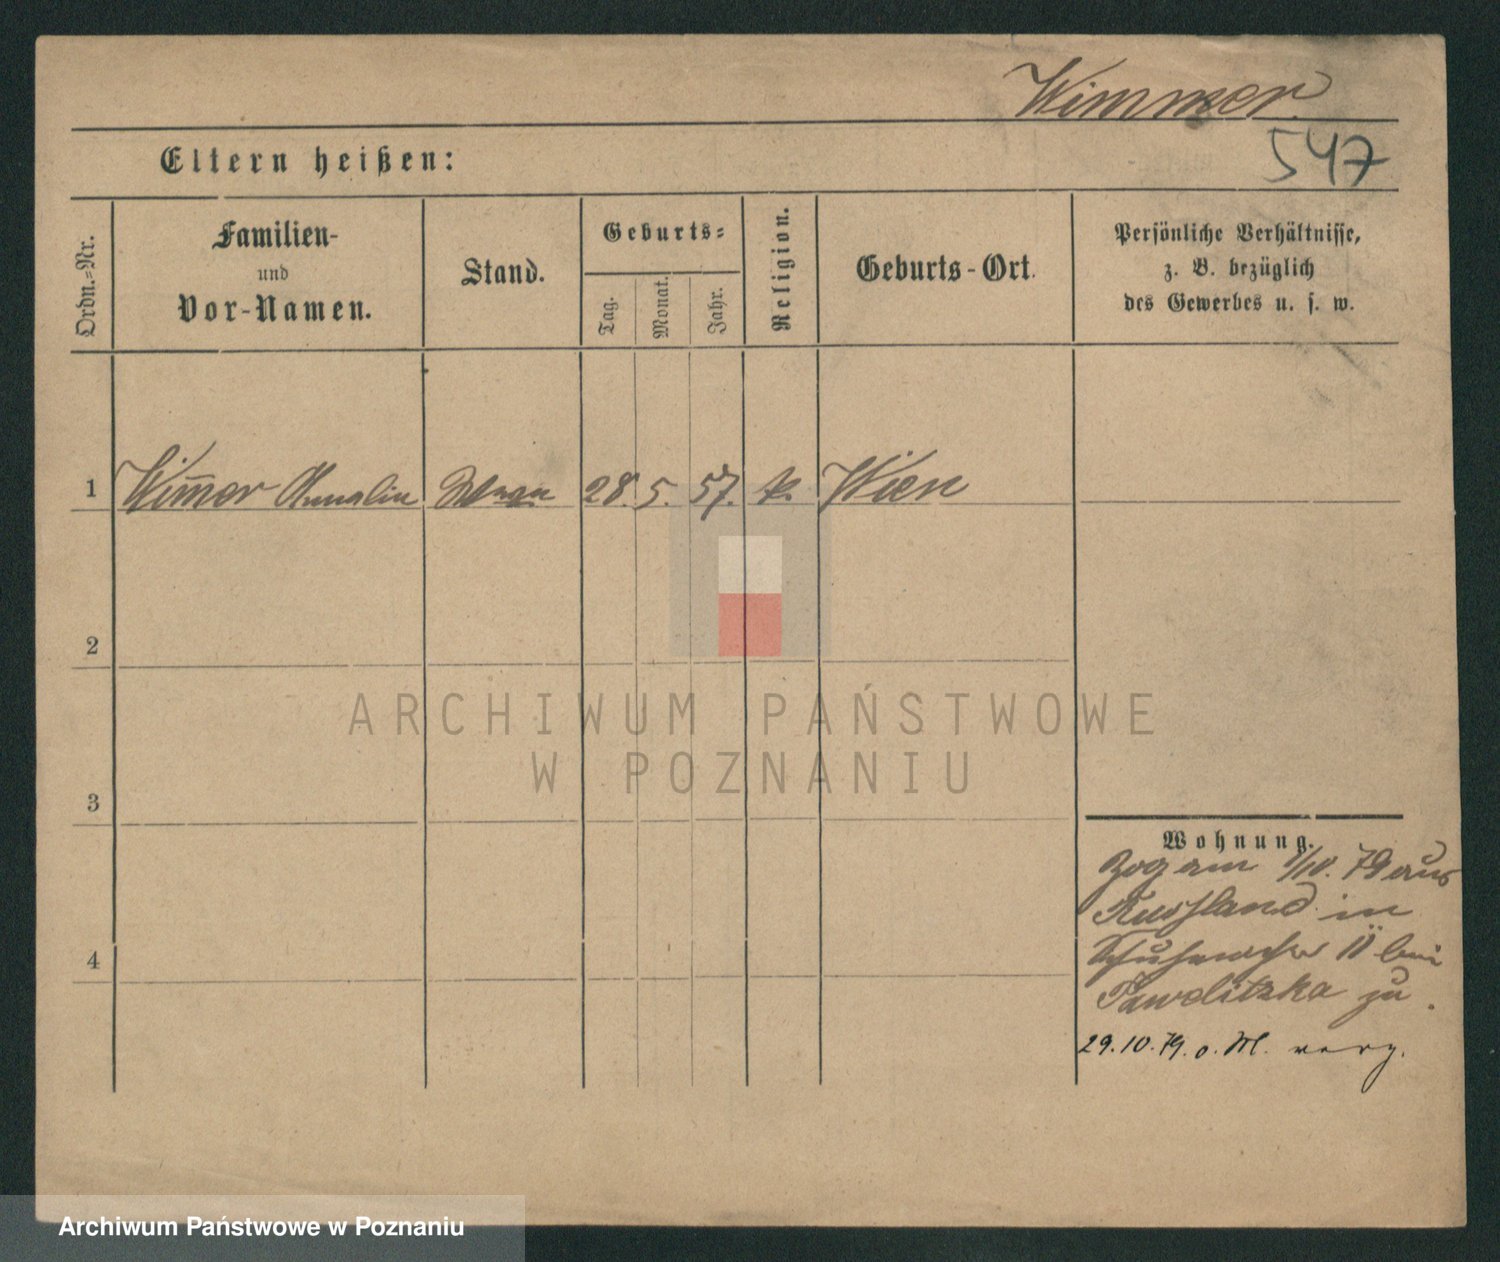 Wimmer.
547
Eltern heißen:
Ordn.-Nr.
Familien-
und
Vor-Namen.
Stand.
Geburts-
Tag.
Monat.
Jahr.
Religion.
Geburts-Ort.
Persönliche Verhältnisse,
z. B. bezüglich
des Gewerbes u. s. w.
1 Wim̅er 28. 5. 57. k. Wien
2
3
4
Wohnung.
Zog am 1/10. 79 aus
Russland in
Schuhmacher 11 bei
Pawelitzka zu.
29.10.79. o. M. verz.
ARCHIWUM PAŃSTWOWE
W POZNANIU
Archiwum Państwowe w Poznaniu